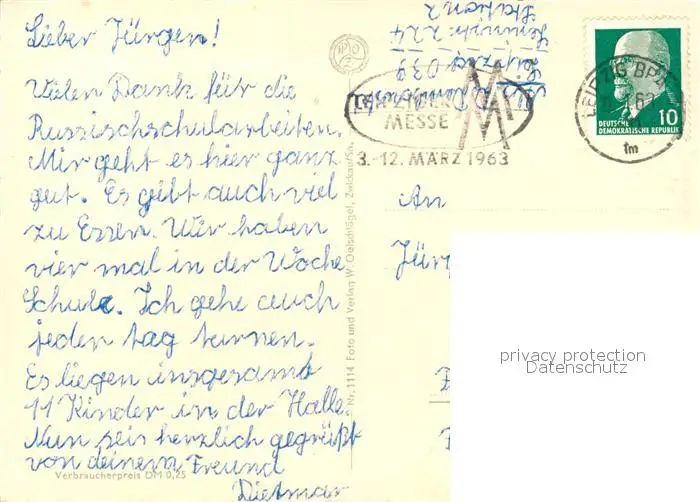 Lieber Jürgen!
Vielen Dank für die
Russischschularbeiten.
Mir geht es hier ganz
gut. Es gibt auch viel
zu Essen. Wir haben
vier mal in der Woche
Schule. Ich gehe auch
jeden tag turnen.
Es liegen insgesamt
11 Kinder in der Halle.
Nun seis herzlich gegrüßt
von deinem Freund
Dietmar
Verbraucherpreis DM 0,25
Nr. 1114 Foto und Verlag W. Oelschlägel, Zwickau/Sa.
Leipzig 039
224
Station 2
LEIPZIGER
MESSE
3.-12. MÄRZ 1963
LEIPZIG BPA
fm
10
DEUTSCHE
DEMOKRATISCHE REPUBLIK
An
Jür
privacy protection
Datenschutz